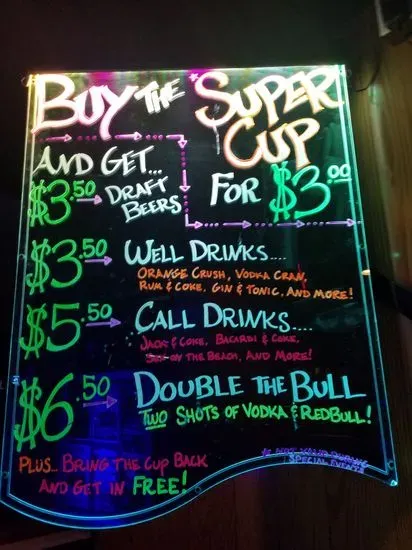 BUY THE *SUPER
CUP
AND GET... FOR $3.00
$3.50 DRAFT
BEERS
$3.50 WELL DRINKS....
ORANGE CRUSH, VODKA CRAN,
RUM & COKE, GIN & TONIC, AND MORE!
$5.50 CALL DRINKS....
JACK & COKE, BACARDI & COKE,
SEX ON THE BEACH, AND MORE!
$6.50 DOUBLE THE BULL
TWO SHOTS OF VODKA & REDBULL!
PLUS... BRING THE CUP BACK
AND GET IN FREE!
* NOT VALID DURING
SPECIAL EVENTS